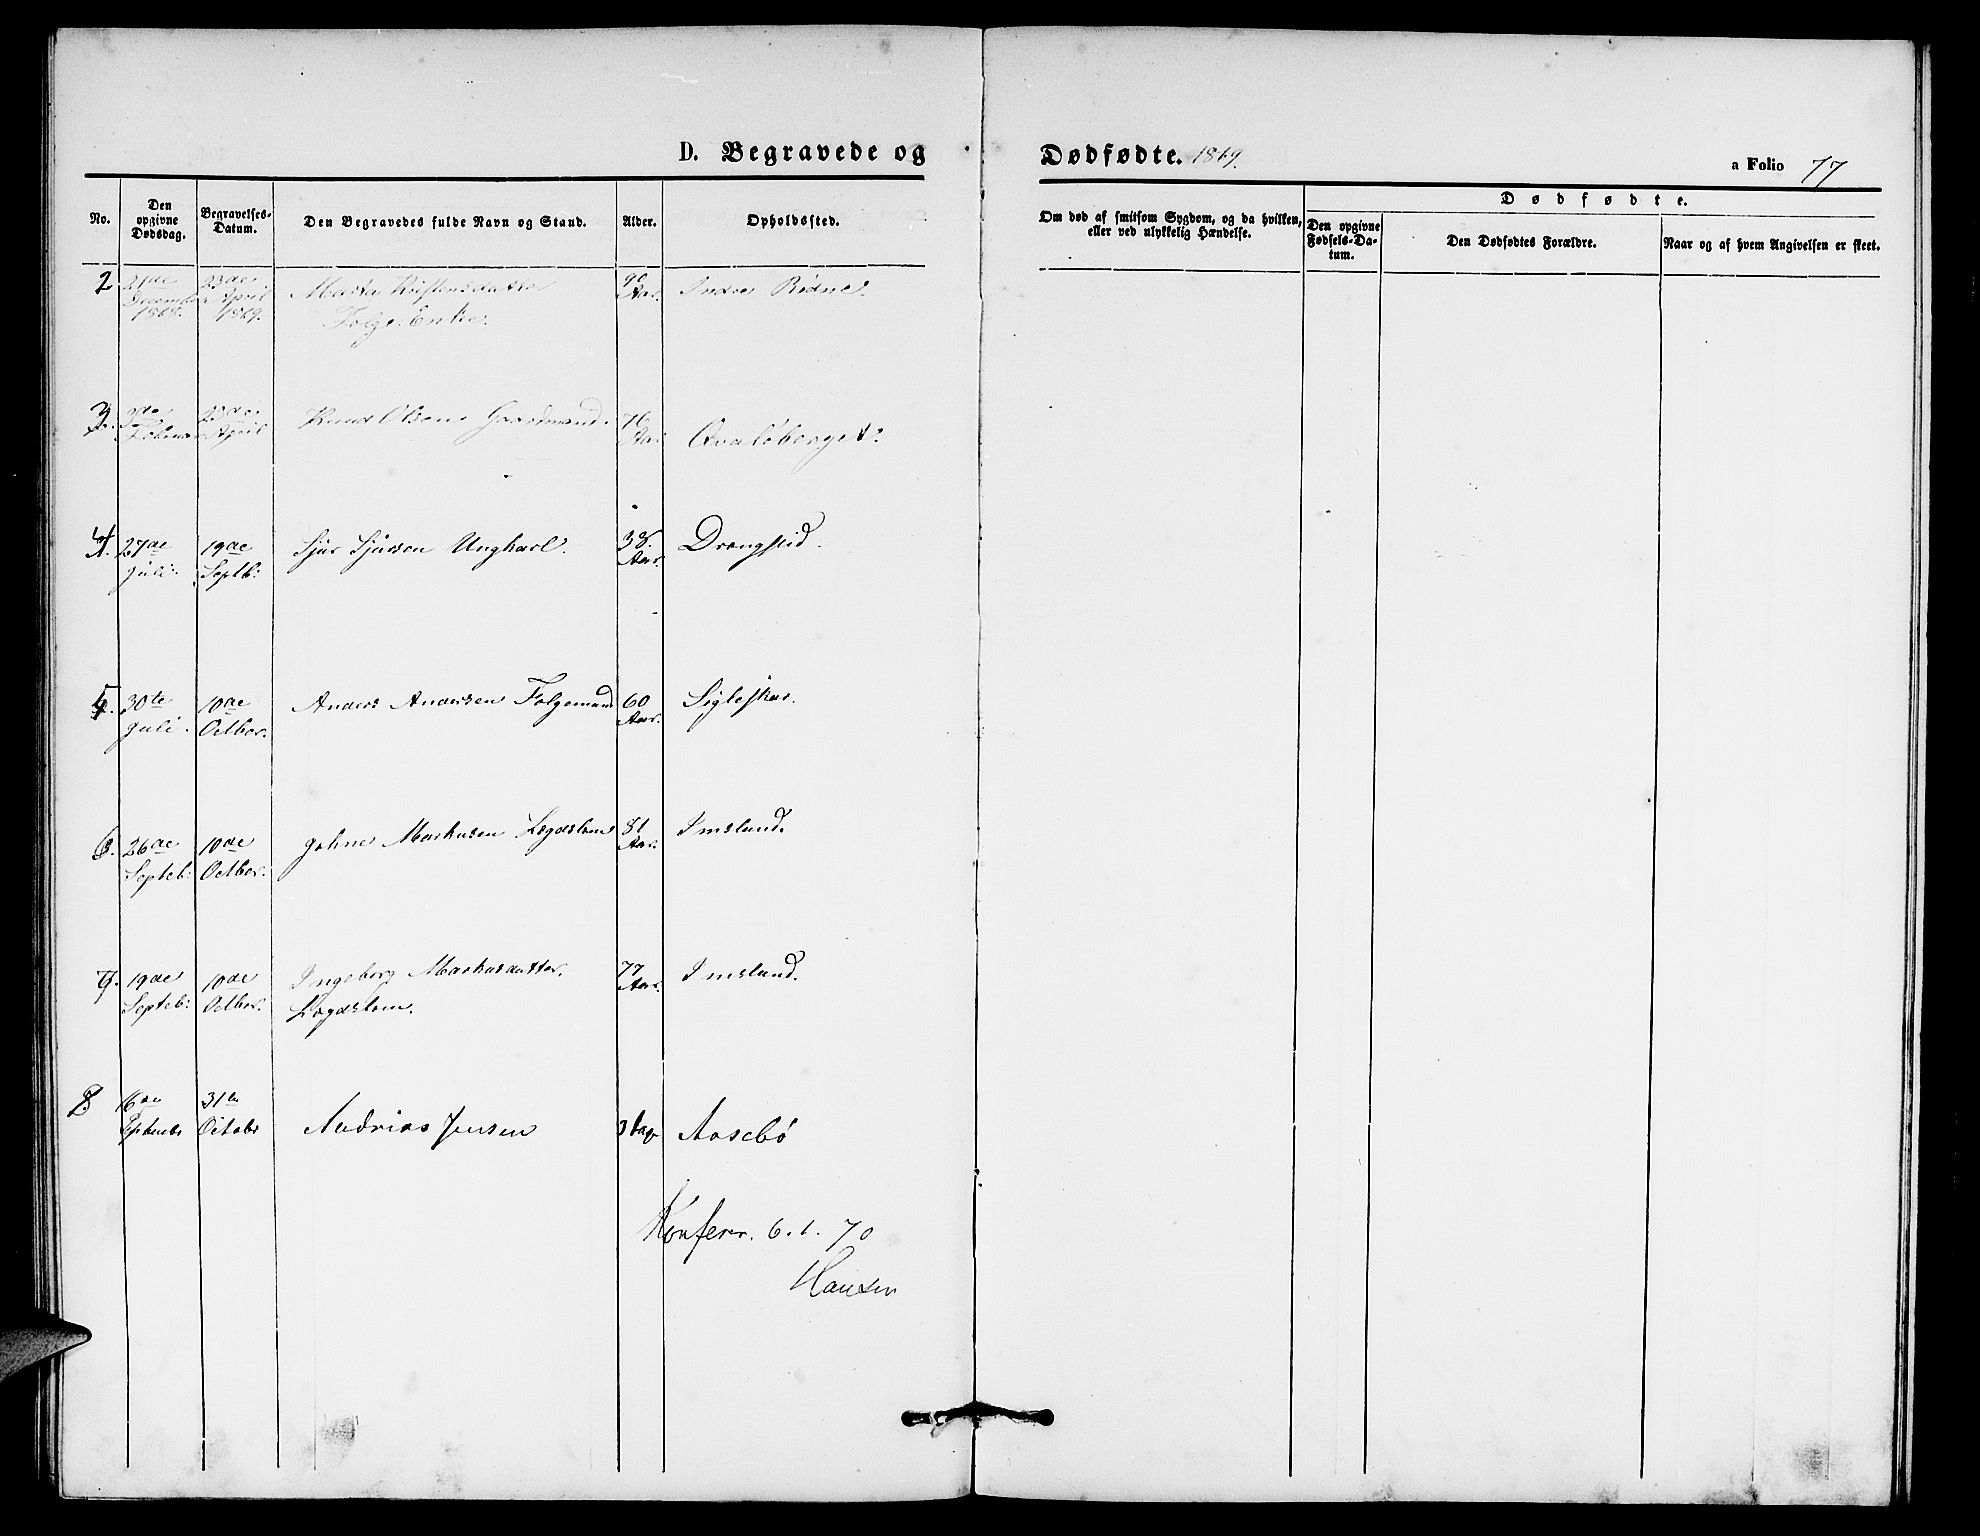 D. Begravede og Dødfødte. 1869.
a Folio 77
No.
Den opgivne Dødsdag.
Begravelses-Datum.
Den Begravedes fulde Navn og Stand.
Alder.
Opholdssted.
Om død af smitsom Sygdom, og da hvilken, eller ved ulykkelig Hændelse.
Dødfødte.
Den opgivne Fødsels-Datum.
Den Dødfødtes Forældre.
Naar og af hvem Angivelsen er skeet.
2 21de 23de Marta 90 Indre Rødne
December April Folge Enke. Aar.
1868. 1869.
3. 3de 23de Knud Olsen Gaardmand. 76
Februar April Aar Qvaløberget.
4. 27de 19de Sjur Sjursen Ungkarl. 38. Drangslid.
Juli. Septb: Aar.
5. 30te 10de Anders Andersen Folgemand 60 Sigleskar.
Juli. Octbor. Aar.
6. 26de 10de Johne Markusen Lægdslem 81 Imsland.
Septeb: Octbor. Aar.
7. 19de 10de Ingeborg Markusdatter. 77 Imsland.
Septeb: Octbor. Lægdslem. Aar.
8 16de 31te
Septembr Octobr Andrias Jensen 3 Dage Aasebø
Konferer. 6.1.70
Hansen